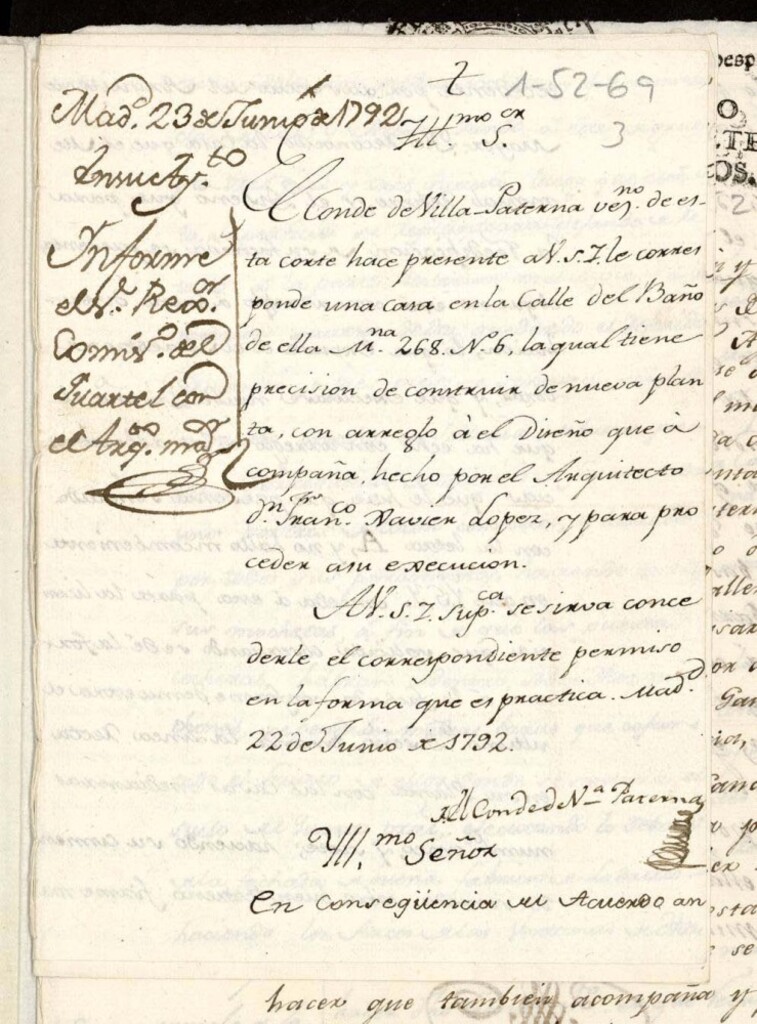 1-52-69
3
Mad.d 23 de Junio de 1792,
En su Ay.to
Informe
el S.r Reg.or
Comis.o del
Quartel con
el Arq.to m.or
Ill.mo S.or
El Conde de Villa-Paterna vez.no de es-
ta corte hace presente a V. S. I. le corres
ponde una casa en la Calle del Baño
de ella M.na 268. N.o 6, la qual tiene
precision de construir de nueva plan
ta, con arreglo à el Diseño que à
compaña, hecho por el Arquitecto
d.n Fran.co Xavier Lopez, y para pro
ceder a su execucion.
A V. S. I. Sup.ca se sirva conce
derle el correspondiente permiso
en la forma que es practica. Mad.d
22 de Junio de 1792.
El Conde de V.a Paterna
Yll.mo Señor
En conseqüencia del Acuerdo an
hacer que tambien acompaña y